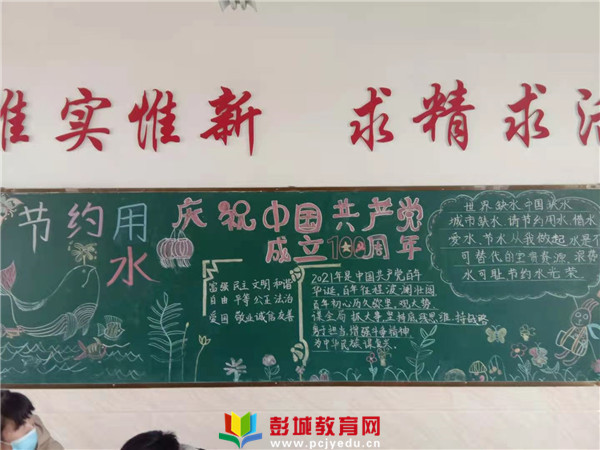 惟实惟新 求精求活
节约用水
庆祝中国共产党
成立100周年
富强 民主 文明 和谐
自由 平等 公正 法治
爱国 敬业 诚信 友善
2021年是中国共产党百年
华诞,百年征程波澜壮阔
百年初心历久弥坚,观大势
谋全局 抓大事,坚持底线思维 持
担当,增强斗争精神
为中华民族谋复兴。
世界缺水 中国缺水
城市缺水 请节约用水 惜水
爱水,节水 从我做起 水是不
可替代的宝贵资源 浪费
水可耻 节约水光荣
彭城教育网
www.pcjyedu.cn